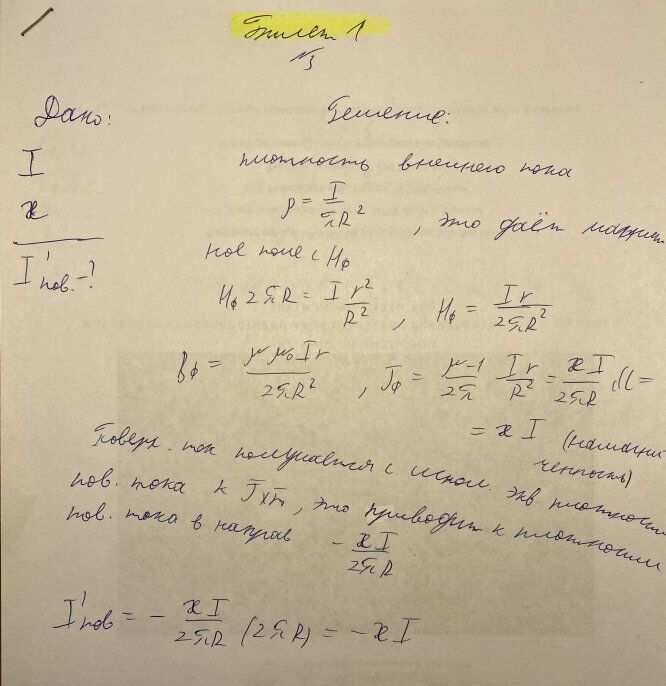 Билет 1
№3
Дано:
I
χ
I'пов. -?
Решение:
плотность внешнего тока
ρ = I/πR² , это даёт магнит
ное поле с Hφ
Hφ 2πR = I r²/R² , Hφ = Ir/2πR²
Bφ = μμ₀Ir/2πR² , Jφ = μ-1/2π Ir/R² = χI/2πR
= χI (намагни
ченность)
Поверх. ток получается с испол. экв плотности
пов. тока к , это приводит к плотности
пов. тока в направ - χI/2πR
I'пов = - χI/2πR (2πR) = -χI